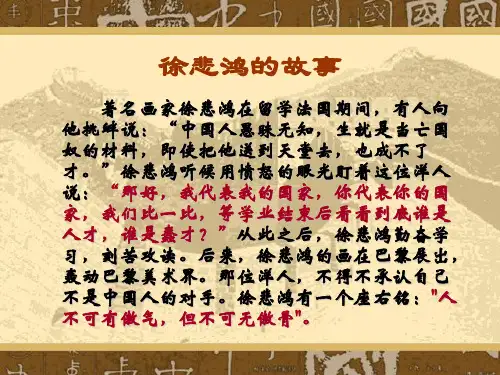 徐悲鸿的故事
著名画家徐悲鸿在留学法国期间，有人向
他挑衅说：“中国人愚昧无知，生就是当亡国
奴的材料，即使把他送到天堂去，也成不了
才。”徐悲鸿听候用愤怒的眼光盯着这位洋人
说：“那好，我代表我的国家，你代表你的国
家，我们比一比，等学业结束后看看到底谁是
人才，谁是蠢才？”从此之后，徐悲鸿勤奋学
习，刻苦攻读。后来，徐悲鸿的画在巴黎展出，
轰动巴黎美术界。那位洋人，不得不承认自己
不是中国人的对手。徐悲鸿有一个座右铭："人
不可有傲气，但不可无傲骨"。